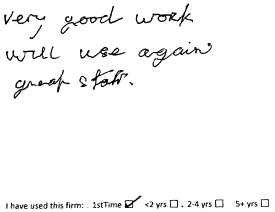 very good work
will use again
great staff.
I have used this firm: 1stTime ☑ <2 yrs ☐, 2-4 yrs ☐ 5+ yrs ☐